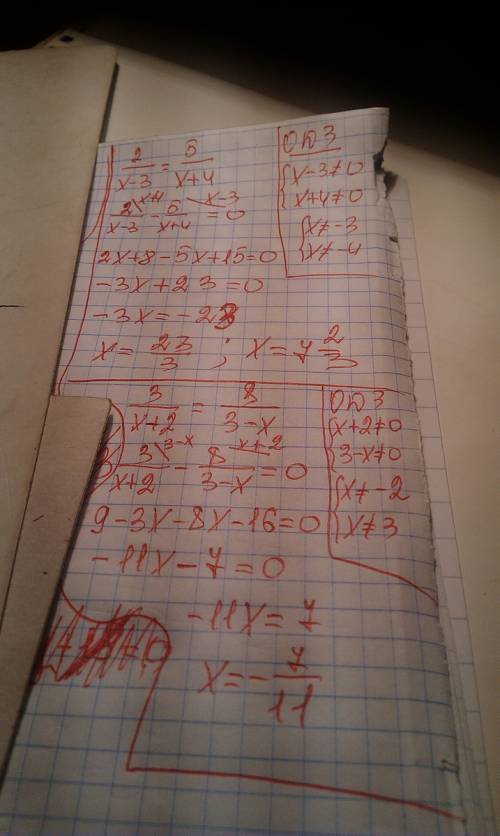 2/(x-3) = 5/(x+4)
2/(x-3) \ x+4 - 5/(x+4) \ x-3 = 0
2x+8-5x+15=0
-3x+23=0
-3x=-23
x = 23/3 ; x = 7 2/3
ОДЗ
{x-3≠0
x+4≠0
{x≠-3
x≠-4
3/(x+2) = 8/(3-x)
3/(x+2) \ 3-x - 8/(3-x) \ x+2 = 0
9-3x-8x-16=0
-11x-7=0
-11x=7
x=-7/11
ОДЗ
{x+2≠0
3-x≠0
{x≠-2
x≠3